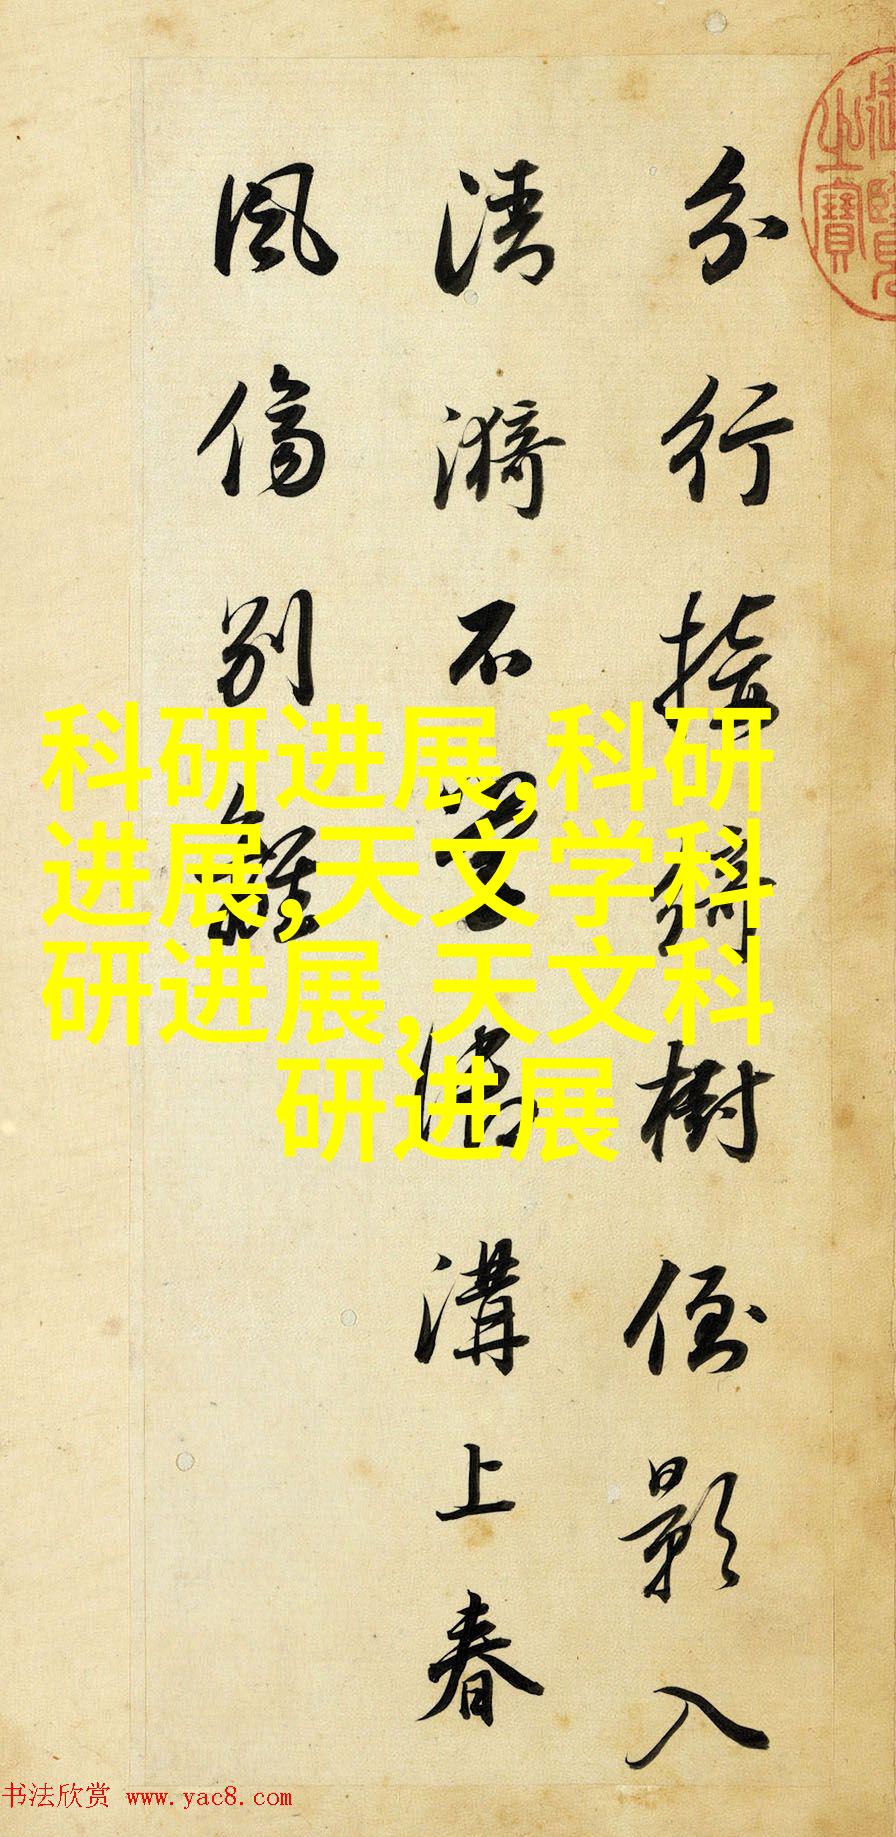 分行接綺樹倒影入
清漪不學御溝上春
風傷別離
科研进展,科研
进展,天文学科
研进展,天文科
研进展
之寶
书法欣赏 www.yac8.com